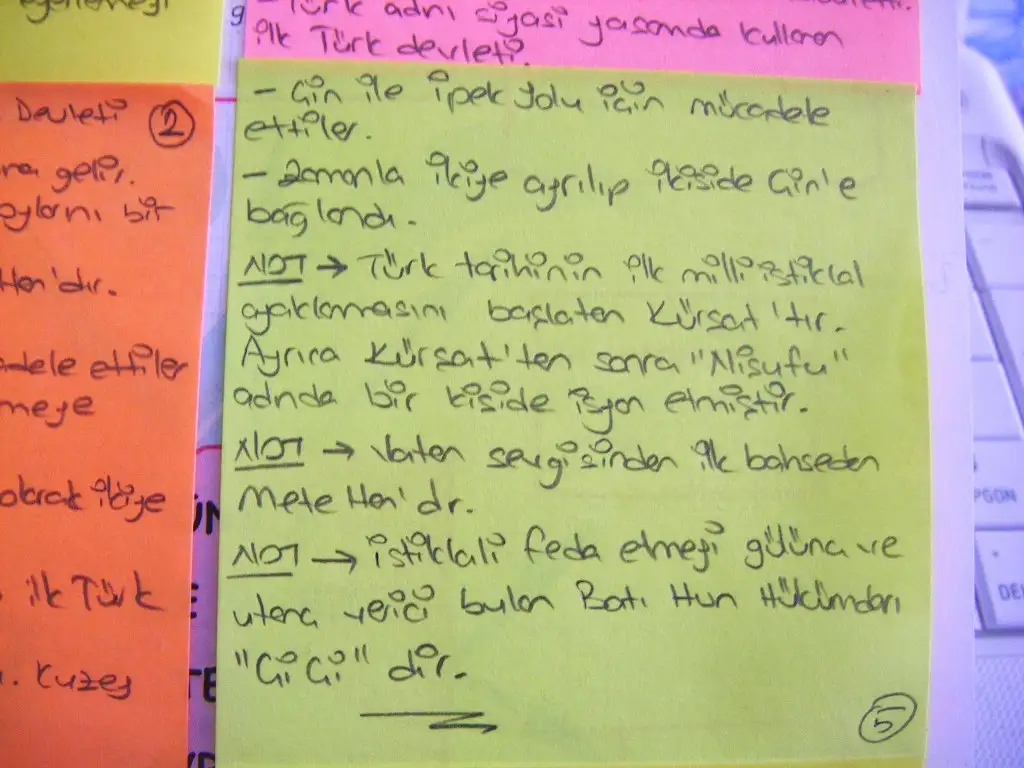 egemenliği
g
- Türk adını siyasi yaşamda kullanan
ilk Türk devleti.
Devleti 2
na gelir.
oylarını bir
Han'dır.
adele ettiler
meye
olarak ikiye
ilk Türk
. Kuzey
- Çin ile ipek yolu için mücadele
ettiler.
- Zamanla ikiye ayrılıp ikiside Çin'e
bağlandı.
NOT → Türk tarihinin ilk milli istiklal
ayaklanmasını başlatan Kürşat'tır.
Ayrıca Kürşat'ten sonra "Nişufu"
adında bir kişide isyan etmiştir.
NOT → Vatan sevgisinden ilk bahseden
Mete Han'dır.
NOT → istiklali feda etmeği gülünç ve
utanç verici bulan Batı Hun Hükümdarı
"Çi Çi" dir.
5
ÜN
E
TE
PGDN
DEL